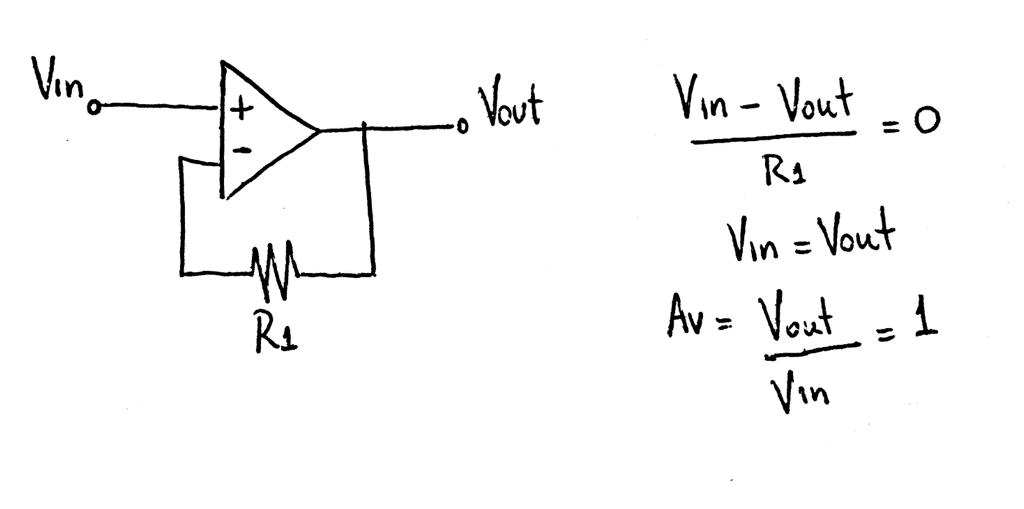 Vin
+
-
Vout
R1
Vin - Vout
R1
= 0
Vin = Vout
Av = Vout
Vin
= 1